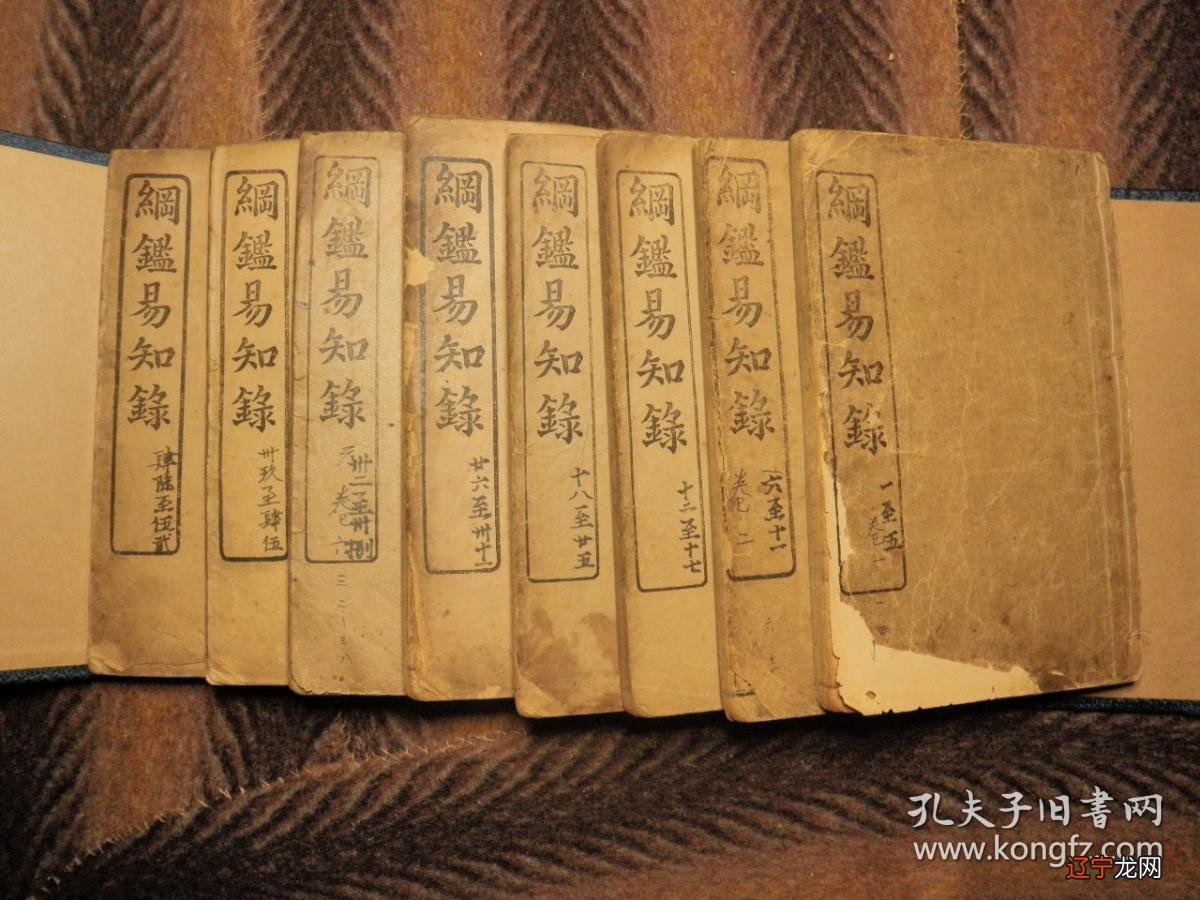 綱鑑易知錄
一至五
卷一
綱鑑易知錄
六至十一
卷二
綱鑑易知錄
十二至十七
綱鑑易知錄
十八至廿五
綱鑑易知錄
廿六至卅十一
綱鑑易知錄
卅二至卅捌
三二-三八
綱鑑易知錄
卅玖至肆伍
綱鑑易知錄
肆陆至伍贰
孔夫子旧書网
www.kongfz.com
辽宁龙网